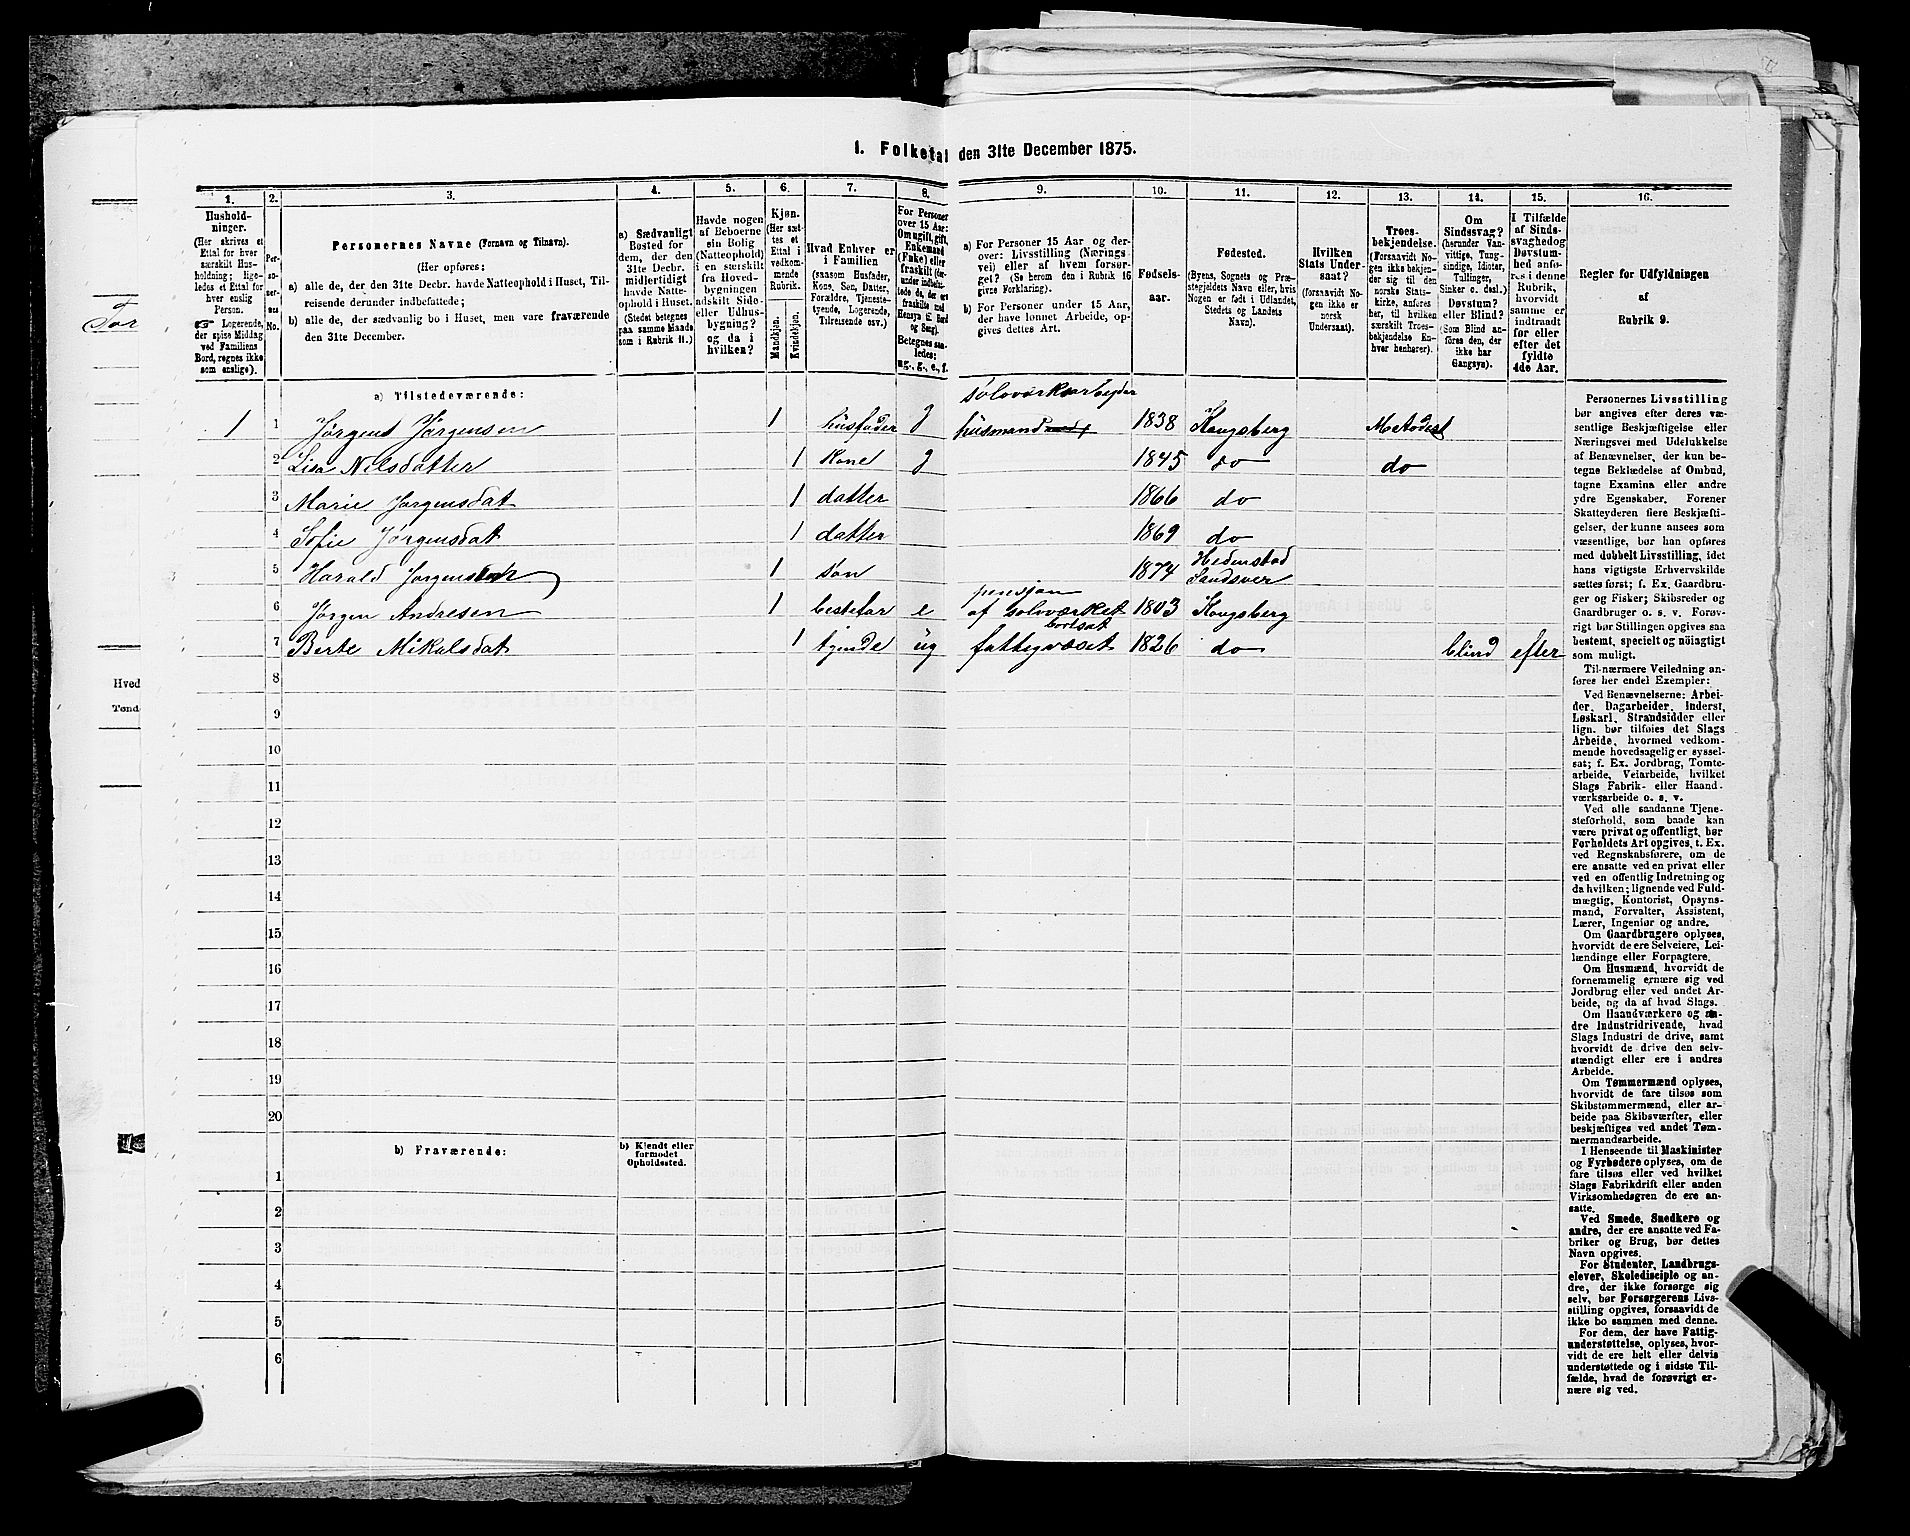 I. Folketal den 31te December 1875.
1. 2. 3. 4. 5. 6. 7. 8. 9. 10. 11. 12. 13. 14. 15. 16.
Hushold-
ninger.
(Her skrives et
Ettal for hver
særskilt Hus-
holdning; lige-
ledes et Ettal for
hver enslig
Person.
☞ Logerende,
der spise Middag
ved Familiens
Bord, regnes ikke
som enslige).
Per-
so-
ner-
nes
No.
Personernes Navne (Fornavn og Tilnavn).
(Her opføres:
a) alle de, der den 31te Decbr. havde Natteophold i Huset, Til-
reisende derunder indbefattede;
b) alle de, der sædvanlig bo i Huset, men vare fraværende
den 31te December.
a) Sædvanligt
Bosted for
dem, der den
31te Decbr.
midlertidigt
havde Natte-
ophold i Huset.
(Stedet betegnes
paa samme Maade
som i Rubrik 11.)
Havde nogen
af Beboerne
sin Bolig
(Natteophold)
i en særskilt
fra Hoved-
bygningen
adskilt Side-
eller Udhus-
bygning?
og da i
hvilken?
Kjøn.
(Her sæt-
tes et
Ettal i
vedkom-
mende
Rubrik.
Mandkjøn.
Kvindekjøn.
Hvad Enhver er
i Familien
(saasom Husfader,
Kone, Søn, Datter,
Forældre, Tjeneste-
tyende, Logerende,
Tilreisende osv.)
For Personer
over 15 Aar:
Om ugift, gift,
Enkemand
(Enke) eller
fraskilt
Betegnes saa-
ledes:
ug., g., e., f.
a) For Personer 15 Aar og der-
over: Livsstilling (Nærings-
vei) eller af hvem forsør-
get? (Se herom den i Rubrik 16
givne Forklaring).
b) For Personer under 15 Aar,
der have lønnet Arbeide, op-
gives dettes Art.
Fødsels-
aar.
Fødested.
(Byens, Sognets og Præ-
stegjeldets Navn eller, hvis
Nogen er født i Udlandet,
Stedets og Landets
Navn).
Hvilken
Stats Under-
saat?
(forsaavidt No-
gen ikke er
norsk
Undersaat).
Troes-
bekjendelse.
(Forsaavidt No-
gen ikke bekjen-
der sig til den
norske Stats-
kirke, anføres
her, til hvilken
særskilt Troes-
bekjendelse En-
hver henhører).
Om
Sindssvag?
(herunder Van-
vittige, Tung-
sindige, Idioter,
Tullinger,
Sinker o. desl.)
Døvstum?
eller Blind?
(Som Blind an-
føres den, der
ikke har
Gangsyn).
I Tilfælde
af Sinds-
svaghed og
Døvstum-
hed anfø-
res i denne
Rubrik,
hvorvidt
samme er
indtraadt
før eller
efter det
fyldte
4de Aar.
Regler for Udfyldningen
af
Rubrik 9.
a) Tilstedeværende:
sølvverksarbeyder
1 1 Jørgens Jørgensen 1 husfader g husmand 1838 Kongsberg Metodest
2 Lisa Nilsdatter 1 kone g 1845 do do
3 Marie Jørgensdat 1 datter 1866 do
4 Sofie Jørgensdat 1 datter 1869 do
5 Harald Jørgensen 1 søn 1874 Hedenstad Sandsver
pensjon
6 Jørgen Andresen 1 bestefar e af sølvværket 1803 Kongsberg
bortsat
7 Berte Mikalsdat 1 tyende ug fattigvæset 1826 do blind efter
8
9
10
11
12
13
14
15
16
17
18
19
20
b) Fraværende:
b) Kjendt eller
formodet
Opholdssted.
1
2
3
4
5
6
Personernes Livsstilling
bør angives efter deres væ-
sentlige Beskjæftigelse eller
Næringsvei med Udelukkelse
af Benævnelser, der kun be-
tegne Beklædelse af Ombud,
tagne Examina eller andre
ydre Egenskaber. Forener
Skatteyderen flere Beskjæfti-
gelser, der kunne ansees som
væsentlige, bør han opføres
med dobbelt Livsstilling, idet
hans vigtigste Erhvervskilde
sættes først; f. Ex. Gaardbru-
ger og Fisker; Skibsreder og
Gaardbruger o. s. v. Forøv-
rigt bør Stillingen opgives saa
bestemt, specielt og nøiagtigt
som muligt.
Til nærmere Veiledning an-
føres her endel Exempler:
Ved Benævnelserne: Arbei-
der, Dagarbeider, Inderst,
Løskarl, Strandsidder eller
lign. bør tilføies det Slags
Arbeide, hvormed vedkom-
mende hovedsagelig er syssel-
sat; f. Ex. Jordbrug, Tomte-
arbeide, Veiarbeide, hvilket
Slags Fabrik- eller Haand-
værksarbeide o. s. v.
Ved alle saadanne Tjene-
steforhold, som baade kan
være privat og offentligt, bør
Forholdets Art opgives, t. Ex.
ved Regnskabsførere, om de
ere ansatte ved en privat eller
ved en offentlig Indretning og
da hvilken; lignende ved Fuld-
mægtig, Kontorist, Opsyns-
mand, Forvalter, Assistent,
Lærer, Ingeniør og andre.
Om Gaardbrugere oplyses,
hvorvidt de ere Selveiere, Lei-
lændinge eller Forpagtere.
Om Husmænd, hvorvidt de
fornemmelig ernære sig ved
Jordbrug eller ved andet Ar-
beide, og da af hvad Slags.
Om Haandværkere og an-
dre Industridrivende, hvad
Slags Industri de drive, samt
hvorvidt de drive den selv-
stændigt eller ere i andres
Arbeide.
Om Tømmermænd oplyses,
hvorvidt de fare tilsøs som
Skibstømmermænd, eller ar-
beide paa Skibsværfter, eller
beskjæftiges ved andet Tøm-
mermandsarbeide.
I Henseende til Maskinister
og Fyrbødere oplyses, om de
fare tilsøs eller ved hvilket
Slags Fabrikdrift eller anden
Virksomhedsgren de ere an-
satte.
Ved Smede, Snedkere og
andre, der ere ansatte ved Fa-
briker og Brug, bør dettes
Navn opgives.
For Studenter, Landbrugs-
elever, Skoledisciple og an-
dre, der ikke forsørge sig
selv, bør Forsørgerens Livs-
stilling opgives, forsaavidt de
ikke bo sammen med denne.
For dem, der have Fattig-
understøttelse, oplyses, hvor-
vidt de ere helt eller delvis
understøttede og i sidste Til-
fælde, hvad de forøvrigt er-
nære sig ved.
Hved